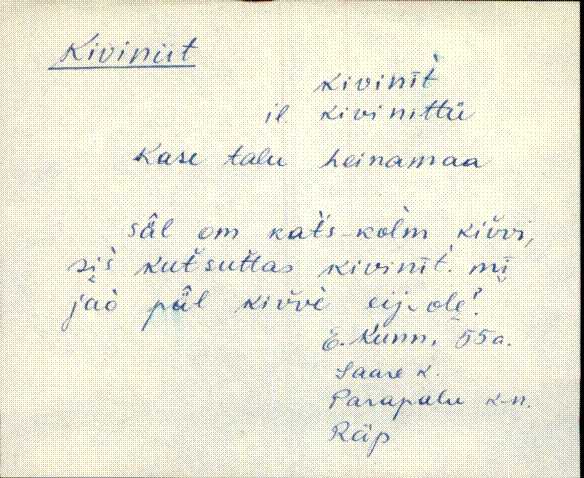 Kiviniit
kivinīt̀
il kivinittü
Kase talu heinamaa
säl om kat̀s-kolm kivvi,
siš kut̆sut̆tas kivinīt̀. mi
jaò pǟl kivvè eij‿ole?
E. Kunn, 55a.
Saare k.
Parapalu k-n.
Räp